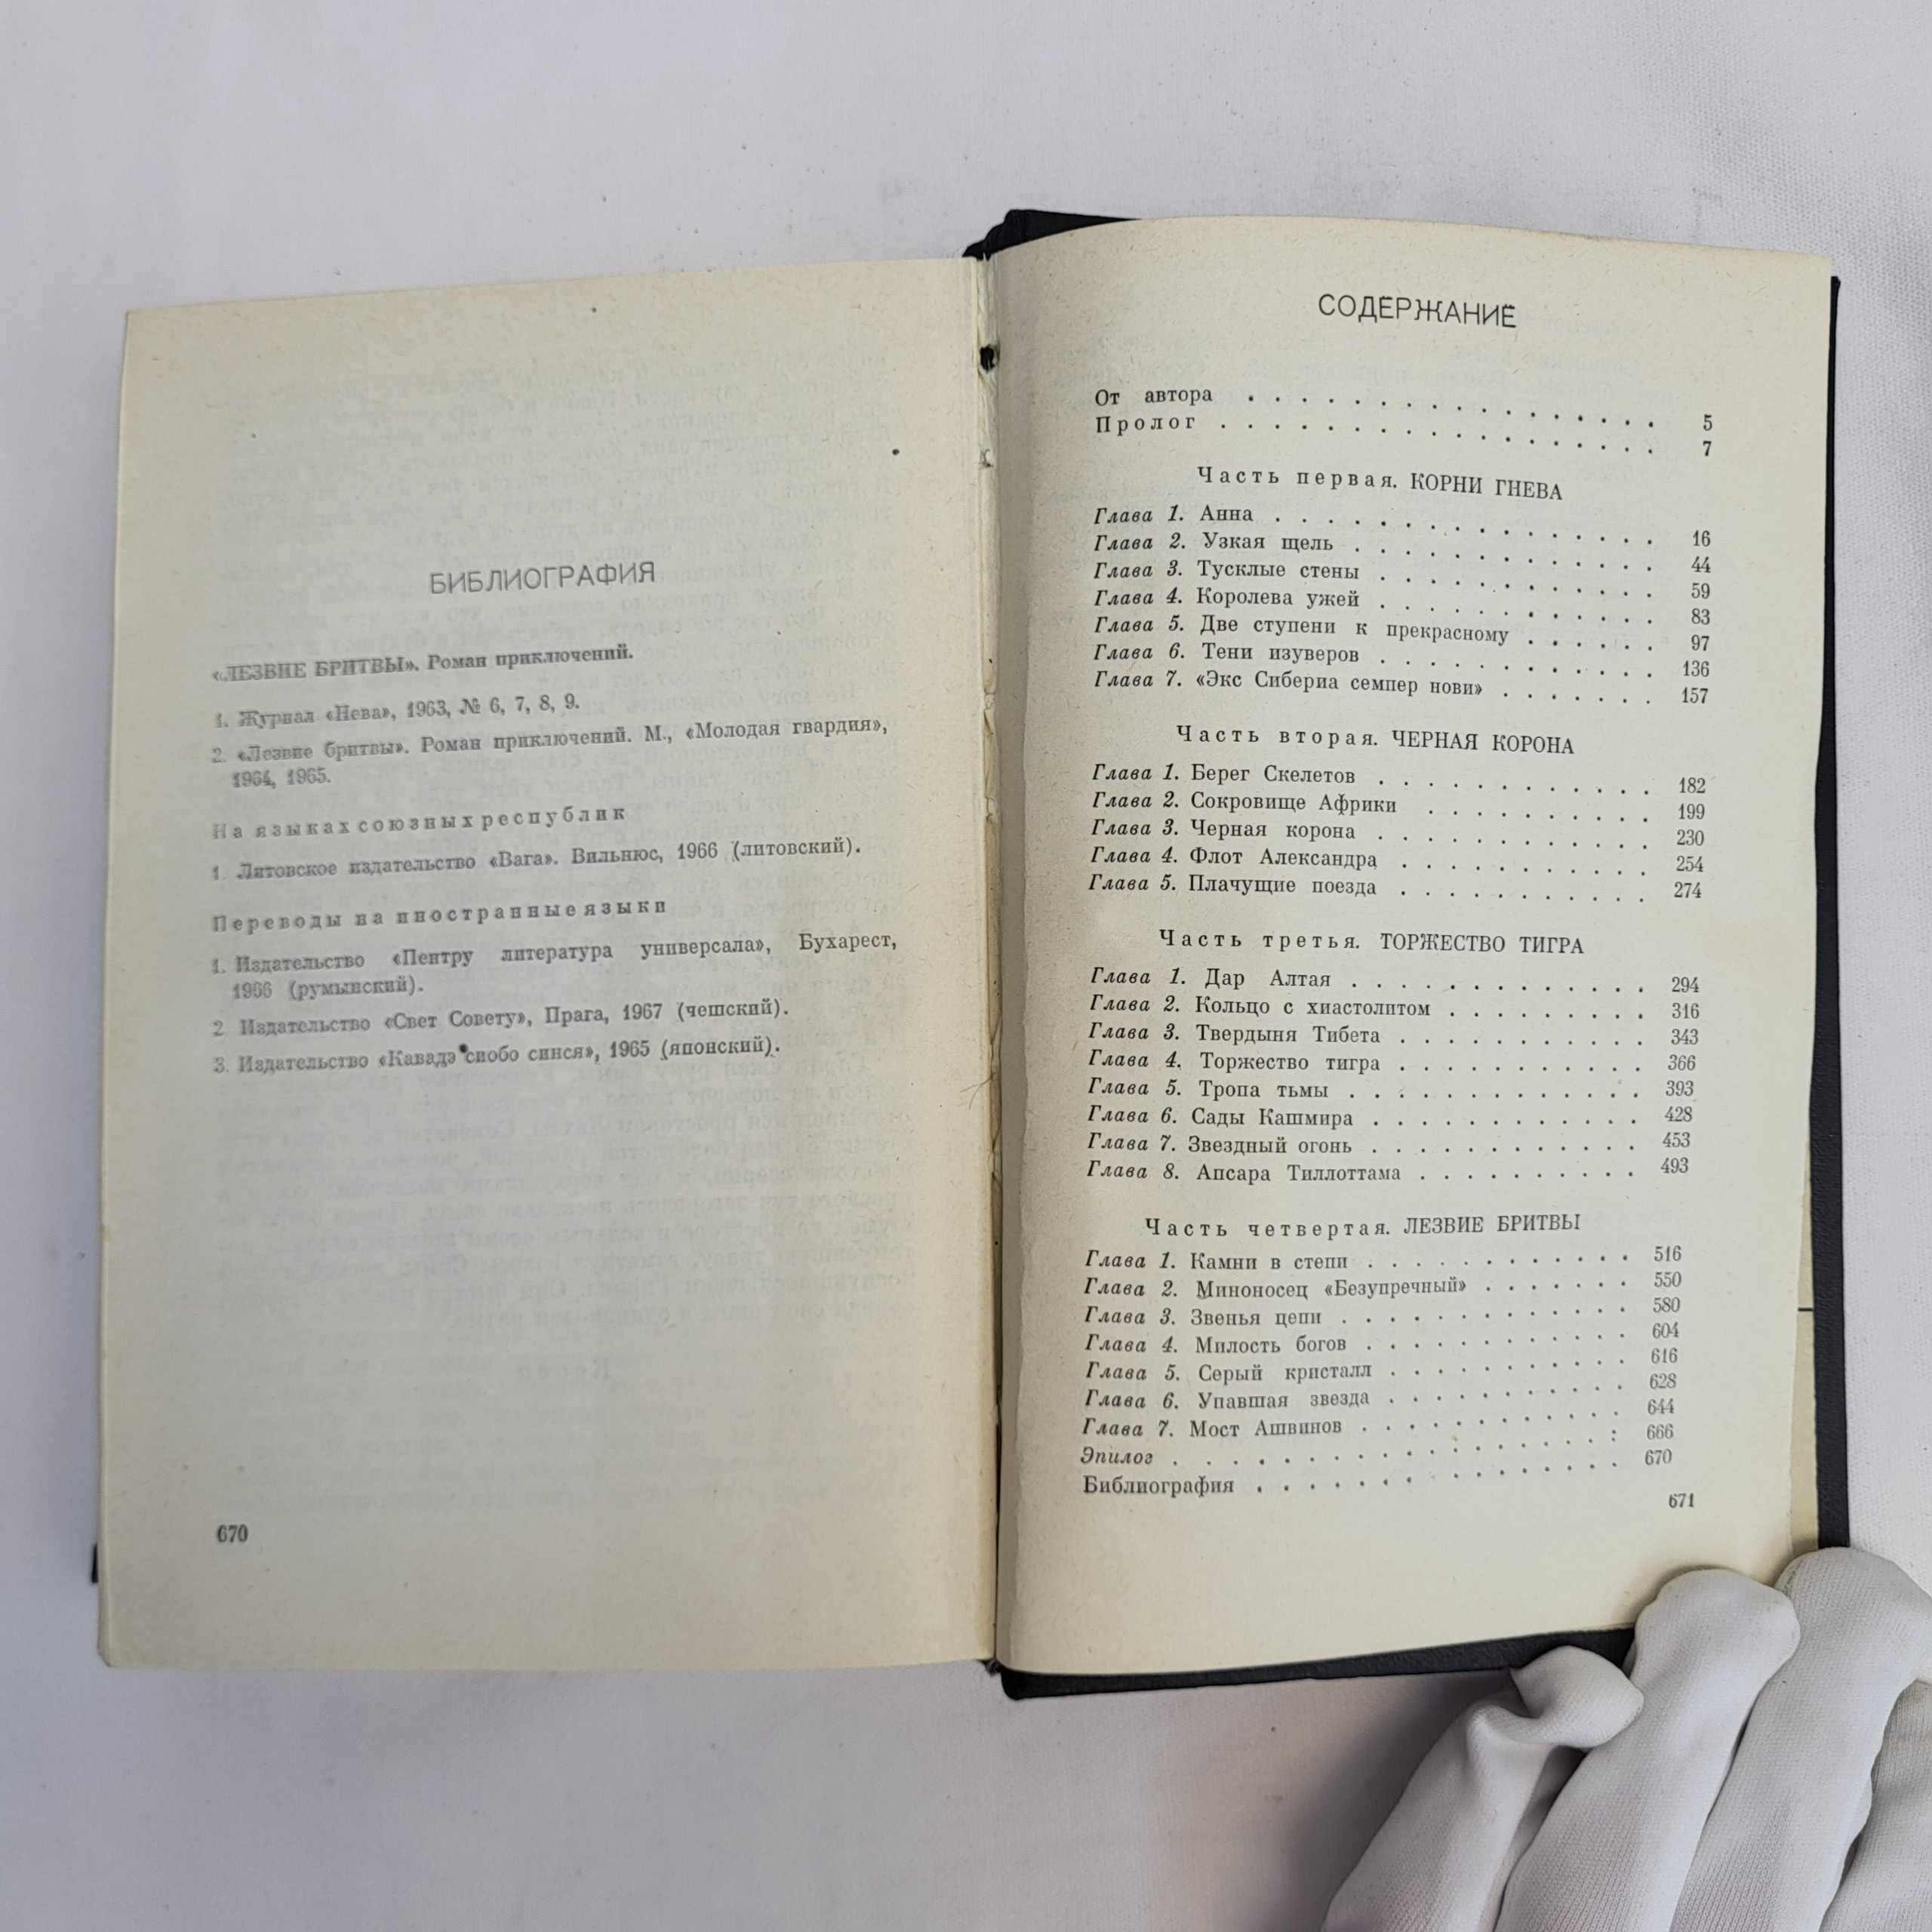 БИБЛИОГРАФИЯ
«ЛЕЗВИЕ БРИТВЫ». Роман приключений.
1. Журнал «Нева», 1963, № 6, 7, 8, 9.
2. «Лезвие бритвы». Роман приключений. М., «Молодая гвардия»,
1964, 1965.
На языках союзных республик
1. Литовское издательство «Вага». Вильнюс, 1966 (литовский).
Переводы на иностранные языки
1. Издательство «Пентру литература универсала», Бухарест,
1966 (румынский).
2 Издательство «Свет Совету», Прага, 1967 (чешский).
3. Издательство «Кавадэ сиобо синся», 1965 (японский).
670
СОДЕРЖАНИЕ
От автора . . . . . . . . . . . . . . . . 5
Пролог . . . . . . . . . . . . . . . . . 7
Часть первая. КОРНИ ГНЕВА
Глава 1. Анна . . . . . . . . . . . . . . . 16
Глава 2. Узкая щель . . . . . . . . . . . . 44
Глава 3. Тусклые стены . . . . . . . . . . . 59
Глава 4. Королева ужей . . . . . . . . . . . 83
Глава 5. Две ступени к прекрасному . . . . . 97
Глава 6. Тени изуверов . . . . . . . . . . . 136
Глава 7. «Экс Сибериа семпер нови» . . . . . . 157
Часть вторая. ЧЕРНАЯ КОРОНА
Глава 1. Берег Скелетов . . . . . . . . . . . 182
Глава 2. Сокровище Африки . . . . . . . . . 199
Глава 3. Черная корона . . . . . . . . . . . 230
Глава 4. Флот Александра . . . . . . . . . . 254
Глава 5. Плачущие поезда . . . . . . . . . . 274
Часть третья. ТОРЖЕСТВО ТИГРА
Глава 1. Дар Алтая . . . . . . . . . . . . 294
Глава 2. Кольцо с хиастолитом . . . . . . . . 316
Глава 3. Твердыня Тибета . . . . . . . . . . 343
Глава 4. Торжество тигра . . . . . . . . . . 366
Глава 5. Тропа тьмы . . . . . . . . . . . . 393
Глава 6. Сады Кашмира . . . . . . . . . . . 428
Глава 7. Звездный огонь . . . . . . . . . . . 453
Глава 8. Апсара Тиллоттама . . . . . . . . . 493
Часть четвертая. ЛЕЗВИЕ БРИТВЫ
Глава 1. Камни в степи . . . . . . . . . . . 516
Глава 2. Миноносец «Безупречный» . . . . . . 550
Глава 3. Звенья цепи . . . . . . . . . . . . 580
Глава 4. Милость богов . . . . . . . . . . . 604
Глава 5. Серый кристалл . . . . . . . . . . 616
Глава 6. Упавшая звезда . . . . . . . . . . 628
Глава 7. Мост Ашвинов . . . . . . . . . . . 644
Эпилог . . . . . . . . . . . . . . . . . 666
Библиография . . . . . . . . . . . . . . 670
671